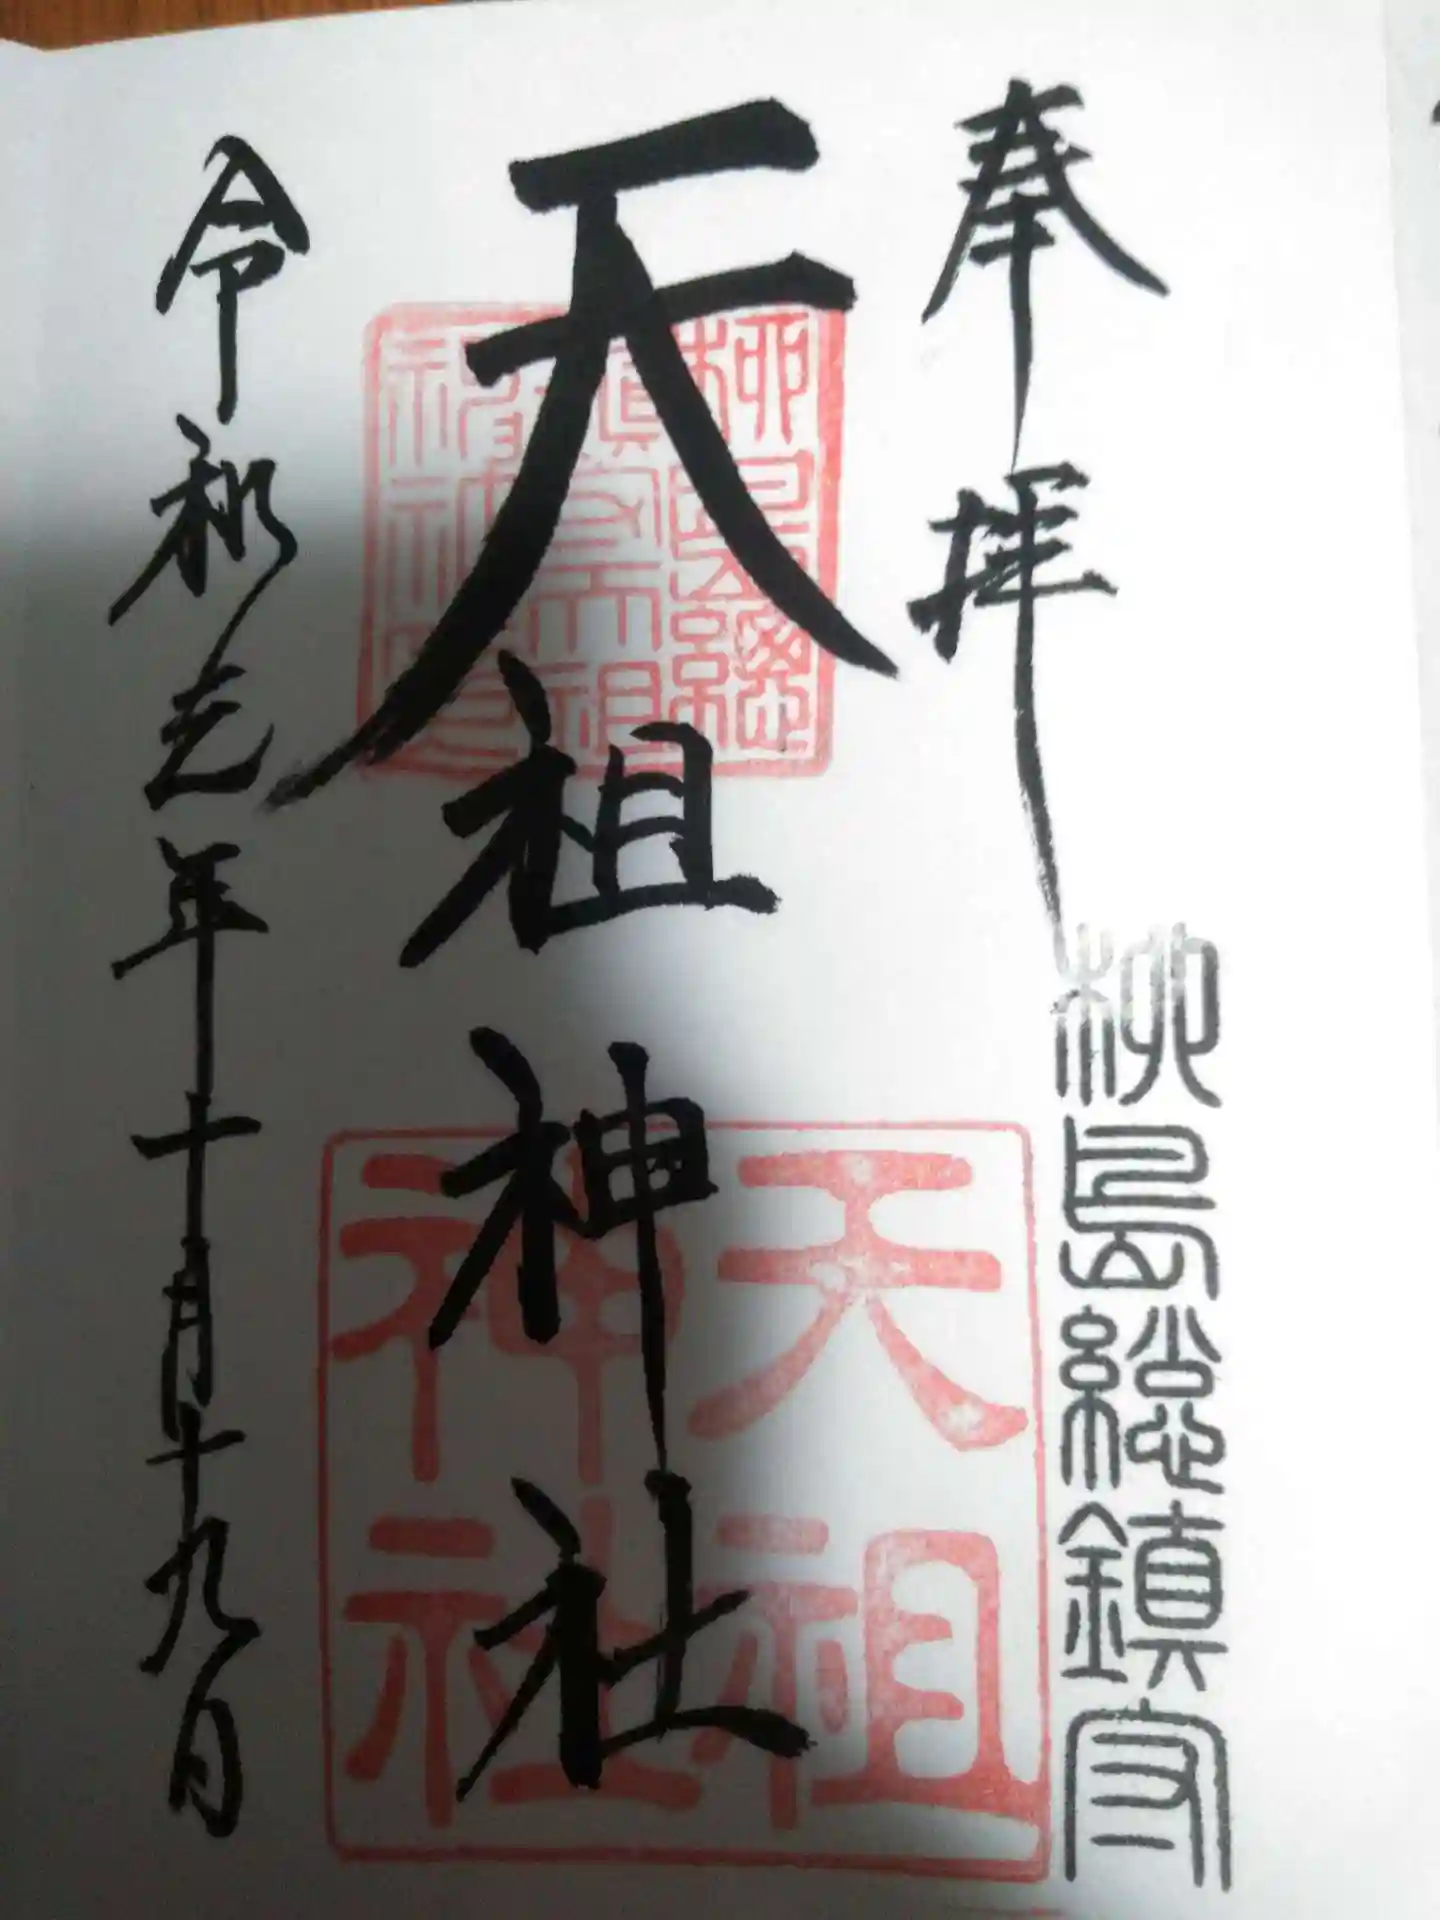 奉拝
柳島総鎮守
天祖神社
令和元年十月十九日
天祖
神社